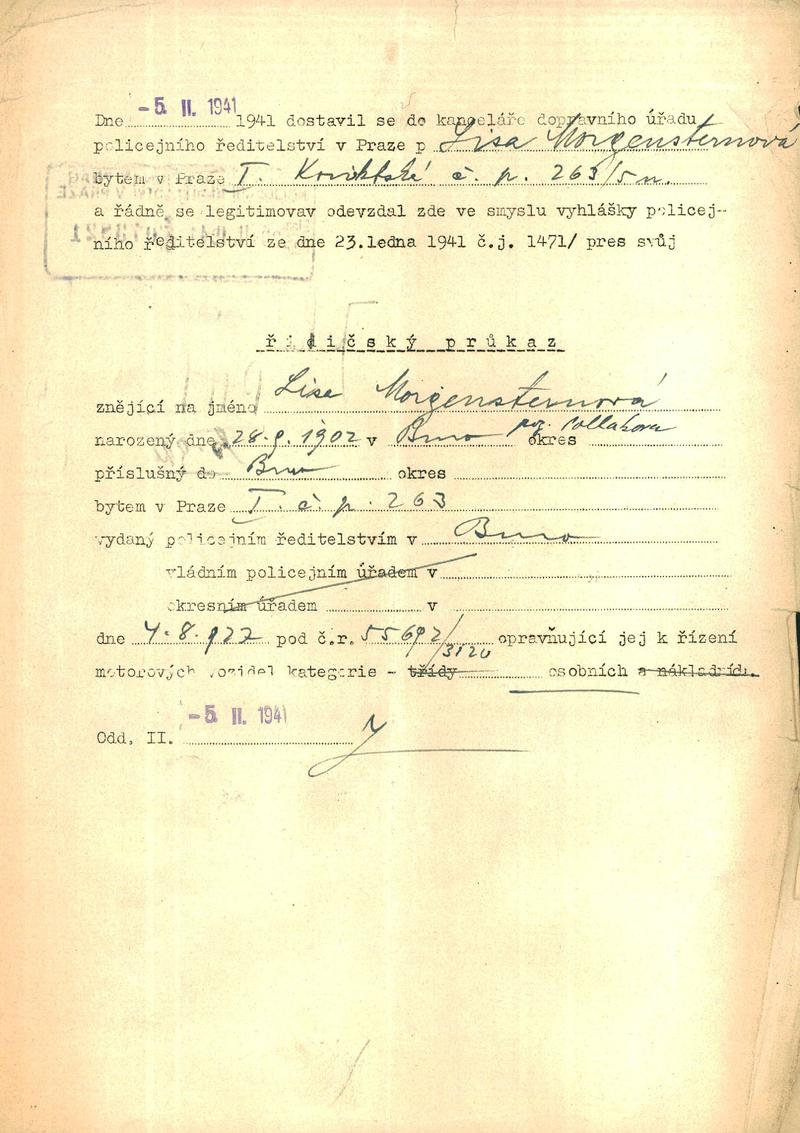 -5. II. 1941
Dne 1941 dostavil se do kanceláře dopravního úřadu
policejního ředitelství v Praze p Lisa Morgensternová
bytem v Praze I. Konviktská č. p. 263/5 n.
a řádně se legitimovav odevzdal zde ve smyslu vyhlášky policej-
ního ředitelství ze dne 23.ledna 1941 č.j. 1471/ pres svůj
řidičský průkaz
znějící na jméno Lisa Morgensternová
narozený dne 28.9.1902 v Brno roz. Pollaková okres
příslušný do Brno okres
bytem v Praze I. č. p. 263
vydaný policejním ředitelstvím v Brno
vládním policejním úřadem v
okresním úřadem v
dne 4.8.927 pod č.r. 55692/3120 opravňující jej k řízení
motorových vozidel kategorie - třídy osobních a nákladních.
-5. II. 1941
Odd, II.